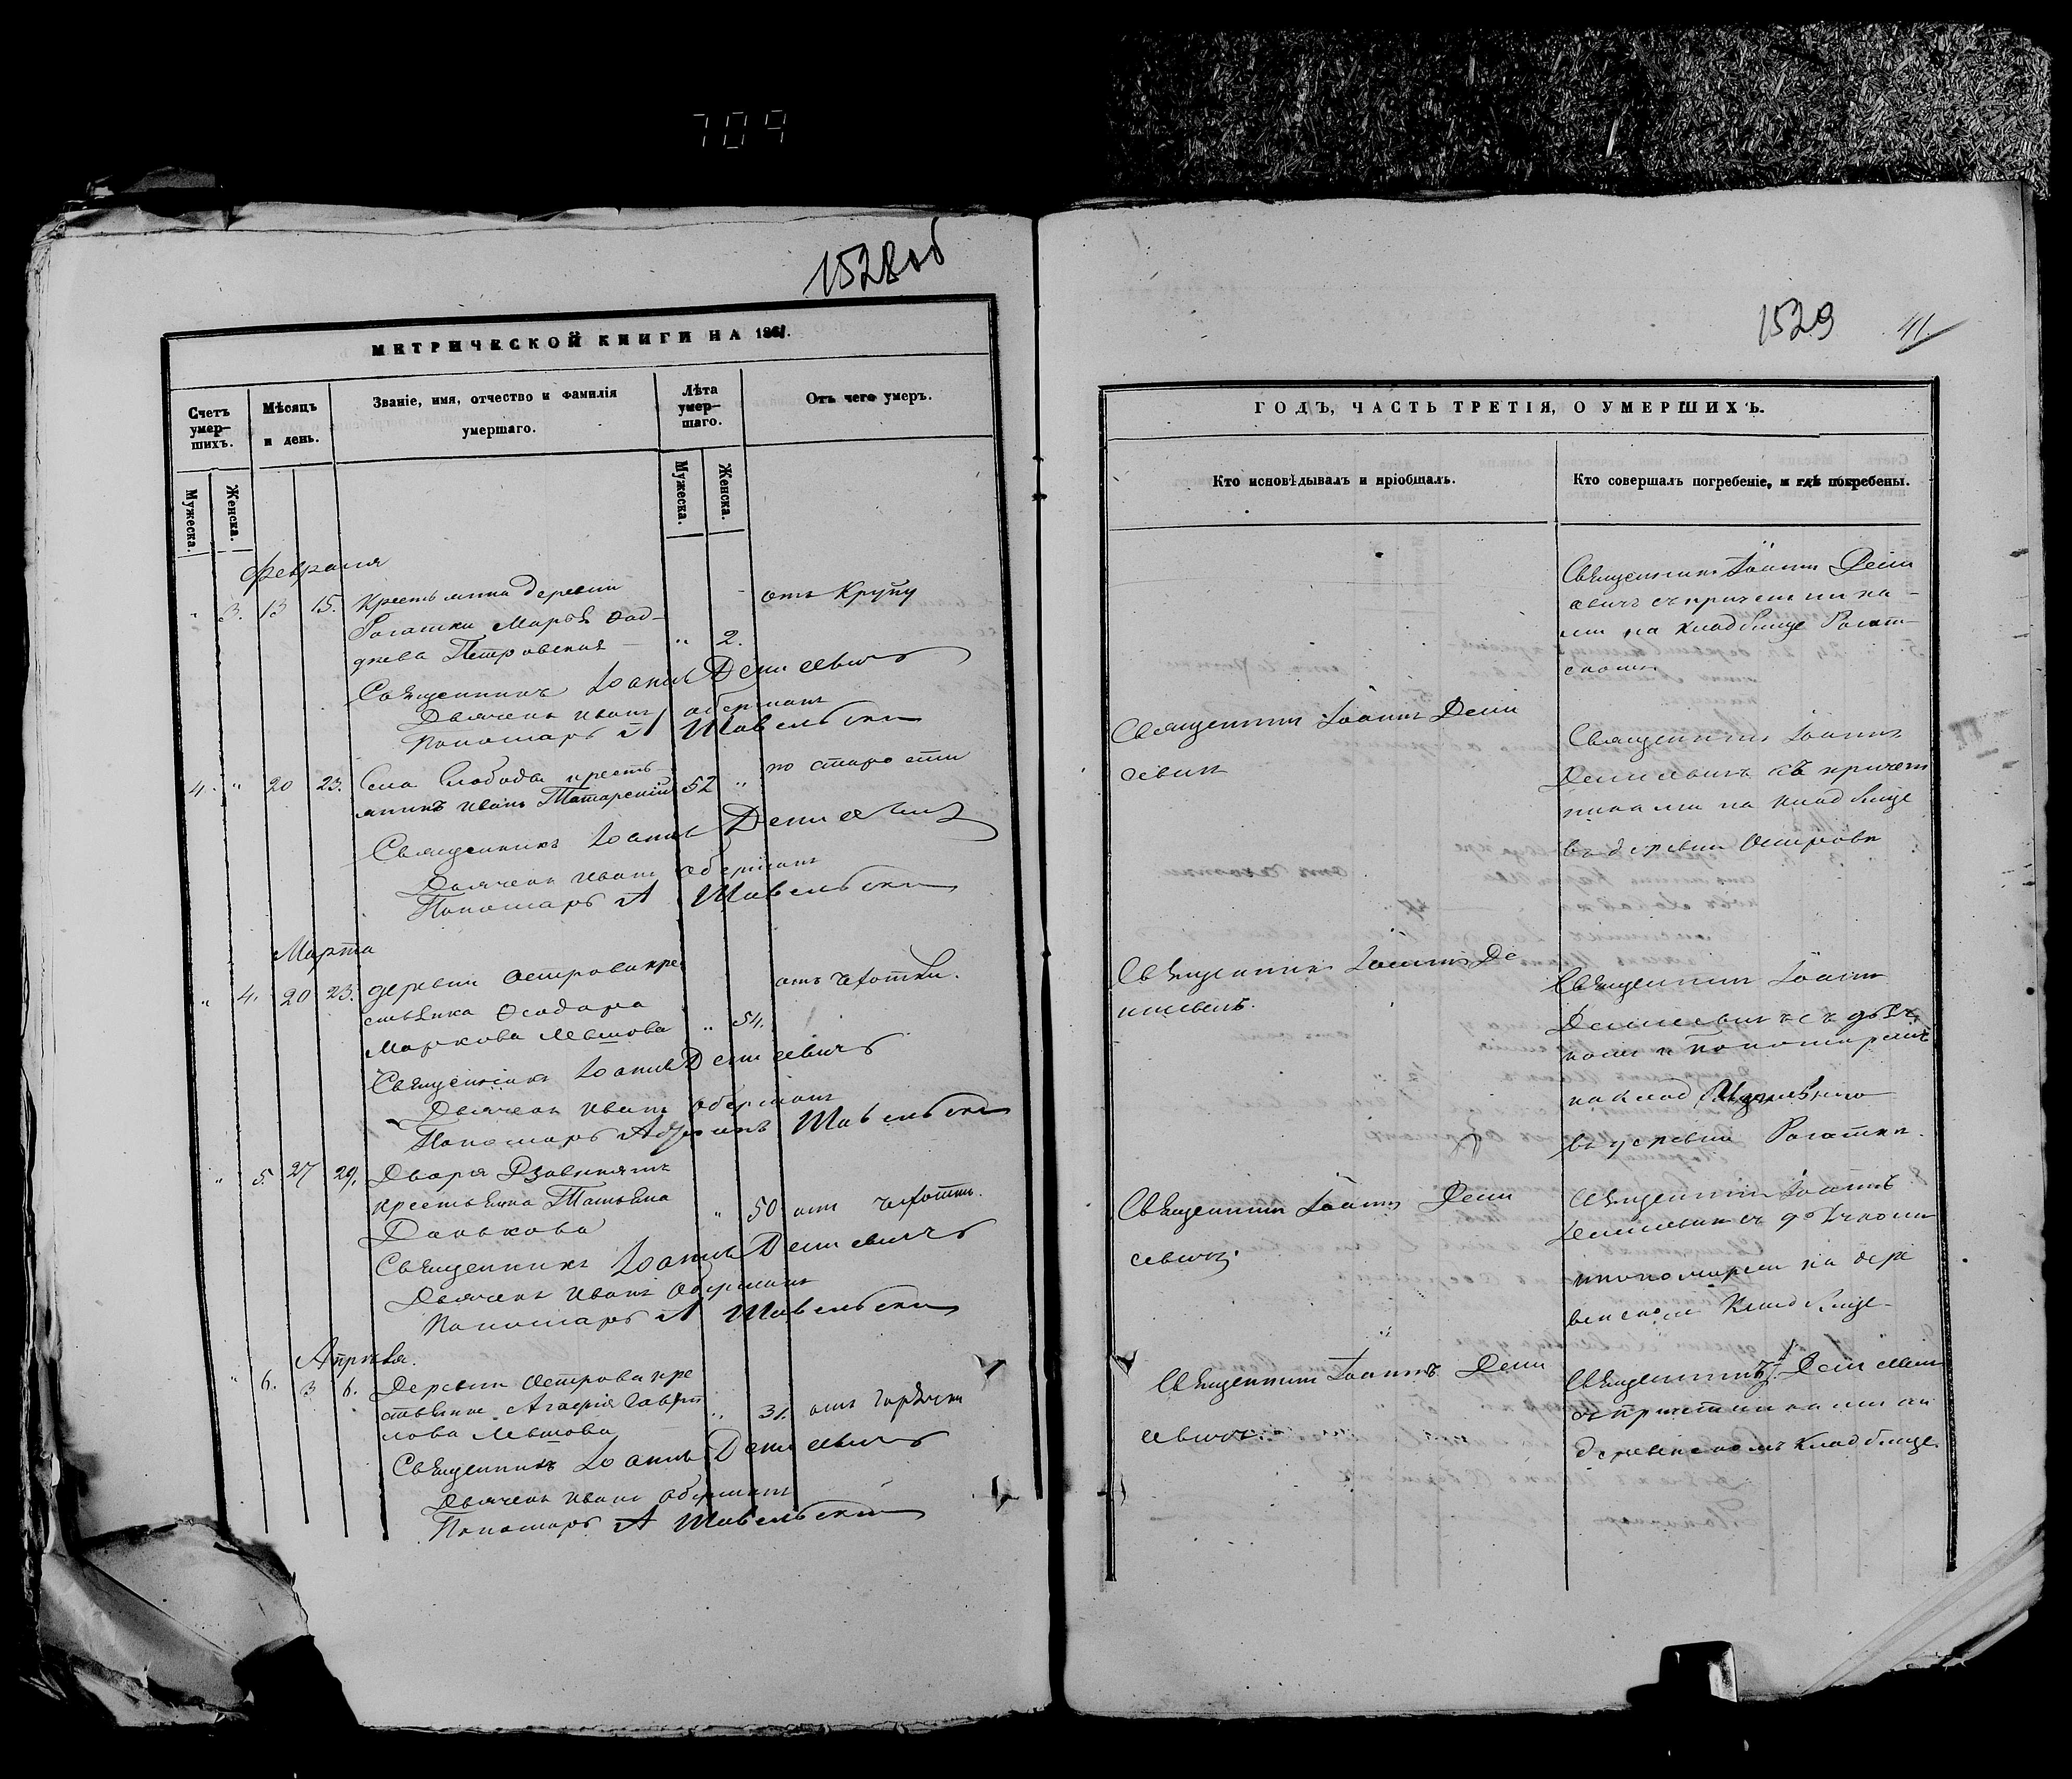 709
1528об
МЕТРИЧЕСКОЙ КНИГИ НА 1861.
Счетъ умер-шихъ.
Мѣсяцъ и день.
Званіе, имя, отчество и фамилія умершаго.
Лѣта умер-шаго.
Отъ чего умеръ.
Мужеска.
Женска.
Мужеска.
Женска.
Февраля
" 3. 13 15. Крестьянка деревни
Рогатки Марья Фад-
дѣева Петровская — " 2. отъ Крупу
Священникъ Іоаннъ Денисевичъ
Дьячекъ Иванъ Оберманъ
Пономарь А Шавельски
4. " 20 23. Села Слобода кресть-
янинъ Иванъ Татарскій 52 " по старости
Священникъ Іоаннъ Денисевичъ
Дьячекъ Иванъ Оберманъ
Пономарь А Шавельски
Марта
" 4. 20 23. деревни Острова кре
стьянка Ѳеодора
Маркова " 54. отъ чехотки.
Священникъ Іоаннъ Денисевичъ
Дьячекъ Иванъ Оберманъ
Пономарь Шавельски
" 5. 27 29. Двора
крестьянка Татьяна
Данькова " 50 отъ чехотки.
Священникъ Іоаннъ Денисевичъ
Дьячекъ Иванъ Оберманъ
Пономарь А Шавельски
Апрѣля.
" 6. 3 6. Деревни Острова кре
стьянка Агафія Гаври
лова " 31. отъ горячки
Священникъ Іоаннъ Денисевичъ
Дьячекъ Иванъ Оберманъ
Пономарь А Шавельски
1529 41.
ГОДЪ, ЧАСТЬ ТРЕТІЯ, О УМЕРШИХЪ.
Кто исповѣдывалъ и пріобщалъ.
Кто совершалъ погребеніе, и гдѣ погребены.
Священникъ Іоаннъ Дени
севичъ съ причетника-
ми на кладбище Рогат-
скомъ
Священникъ Іоаннъ Дени
севичъ
Священникъ Іоаннъ
Денисевичъ съ причет
никами на кладбище
въ деревни Островъ
Священникъ Іоаннъ Де
нисевичъ.
Священникъ Іоаннъ
Денисевичъ съ дьяч
комъ и пономаремъ
на клад
въ деревни Рогатки.
Священникъ Іоаннъ Дени
севичъ.
Священникъ Іоаннъ
Денисевичъ съ дьячкомъ
и пономаремъ на дере
венскомъ кладбище.
Священникъ Іоаннъ Дени
севичъ.
Священникъ І. Денисевичъ
съ причетниками на
деревенскомъ кладбище.